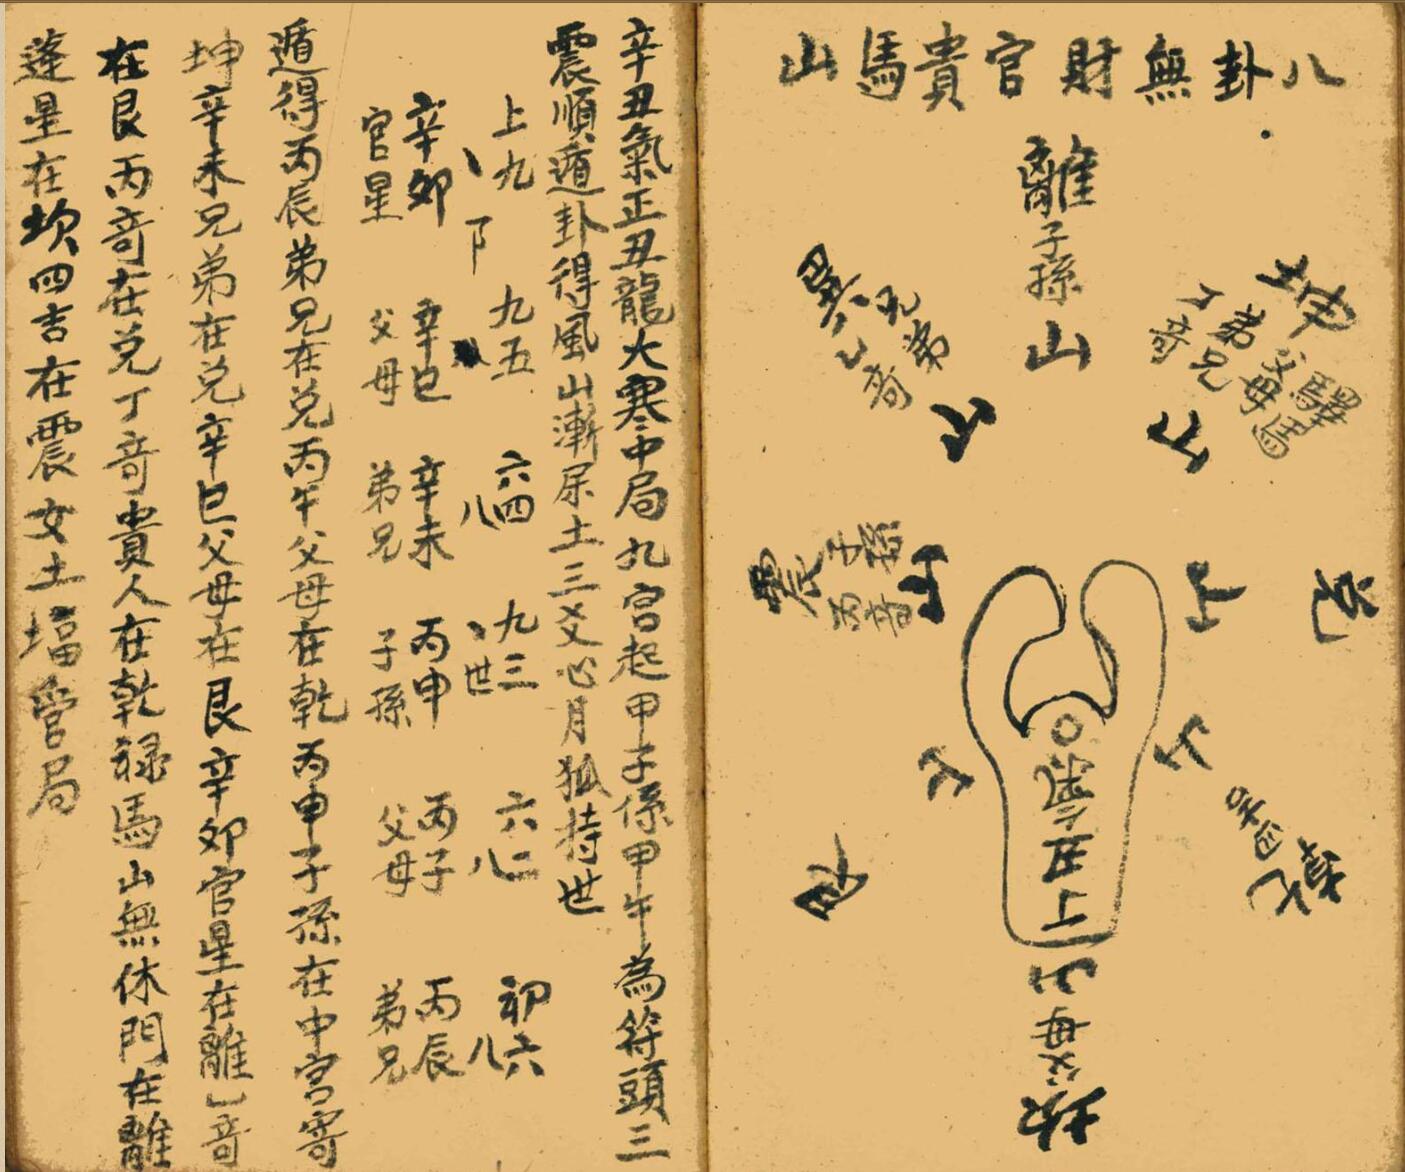 八卦無財官貴馬山
離
子孫
山
坤
父母
驛馬
弟兄
丁奇
山
巽
兄弟
乙奇
山
震
子孫
丙奇
山
兌
山
乾
山
艮
山
上丑氣
山
父母
坎
辛丑氣正丑龍大寒中局九宮起甲子係甲午為符頭三
震順遁卦得風山漸尿土三爻心月狐持世
上九
九五
六四
九三
六二
初六
八
世
八
八
辛卯
辛巳
辛未
丙申
丙子
丙辰
官星
父母
弟兄
子孫
父母
弟兄
遁得丙辰弟兄在兌丙午父母在乾丙申子孫在中宮寄
坤辛未兄弟在兌辛巳父母在艮辛卯官星在離乙奇
在艮丙奇在兌丁奇貴人在乾祿馬山無休門在離
蓬星在坎四吉在震女土蝠管局